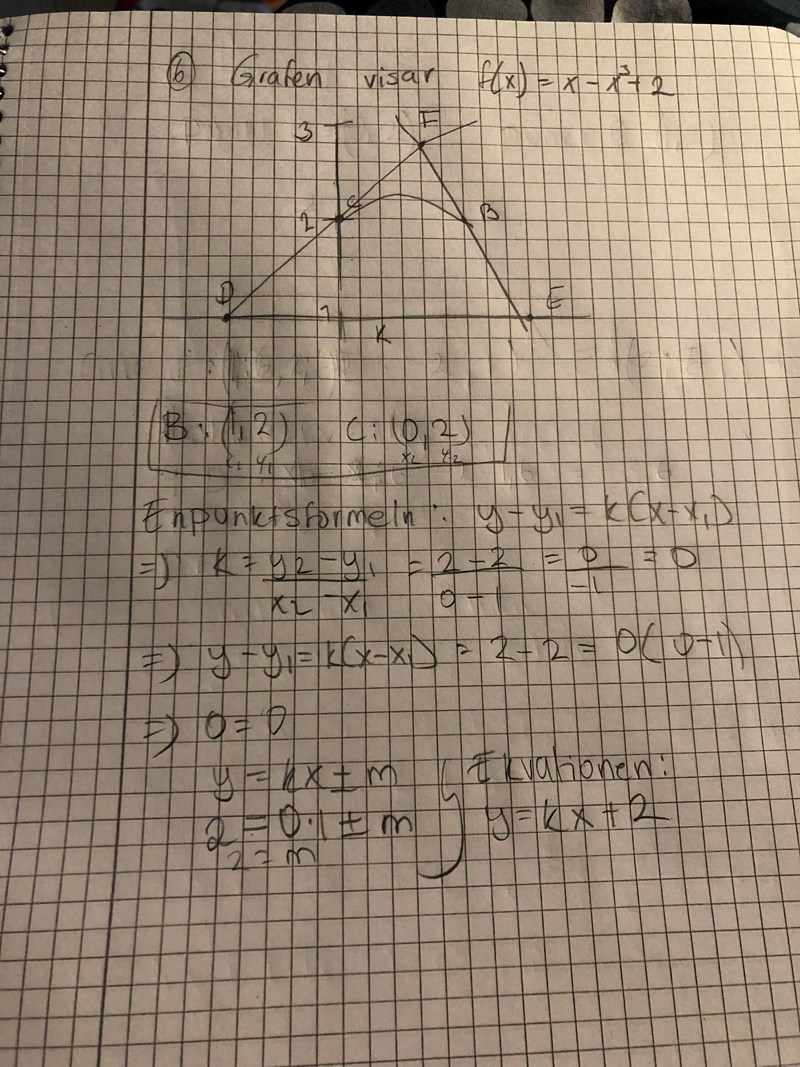 6 Grafen visar f(x) = x - x³ + 2
3 F
2 C B
D 1 E
K
B: (1, 2) C: (0, 2)
x₁ y₁ x₂ y₂
Enpunktsformeln: y - y₁ = k(x - x₁)
=> k = y₂ - y₁ / x₂ - x₁ = 2 - 2 / 0 - 1 = 0 / -1 = 0
=> y - y₁ = k(x - x₁) = 2 - 2 = 0(0 - 1)
=> 0 = 0
y = kx ± m Ekvationen:
2 = 0·1 ± m y = kx + 2
2 = m